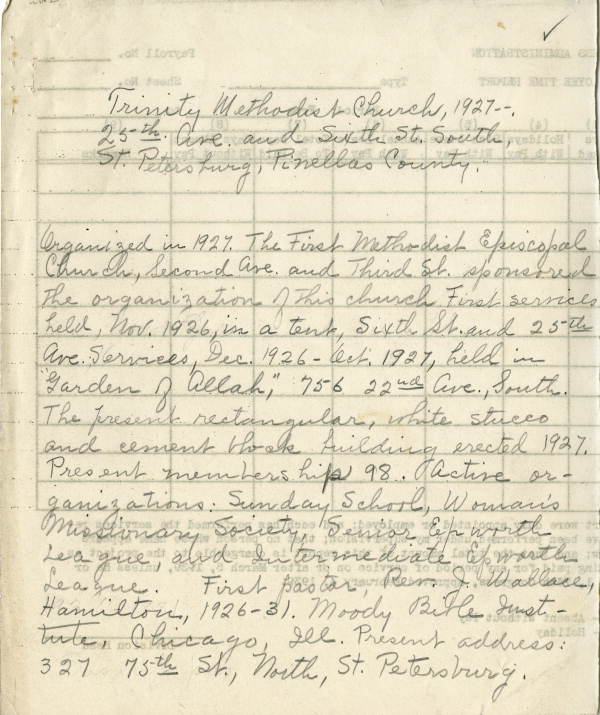 Trinity Methodist Church, 1927--.
25th Ave. and Sixth St. South,
St. Petersburg, Pinellas County.
Organized in 1927. The First Methodist Episcopal
Church, Second Ave. and Third St. sponsored
the organization of this church First services
held, Nov. 1926, in a tent, Sixth St. and 25th
Ave. Services, Dec. 1926 - Oct. 1927, held in
"Garden of Allah," 756 22nd Ave., South.
The present rectangular, white stucco
and cement block building erected 1927.
Present membership 98. Active or-
ganizations: Sunday School, Woman's
Missionary Society, Senior Epworth
League, and Intermediate Epworth
League. First pastor, Rev. J. Wallace,
Hamilton, 1926-31. Moody Bible Inst-
tute, Chicago, Ill. Present address:
327 75th St., North, St. Petersburg.